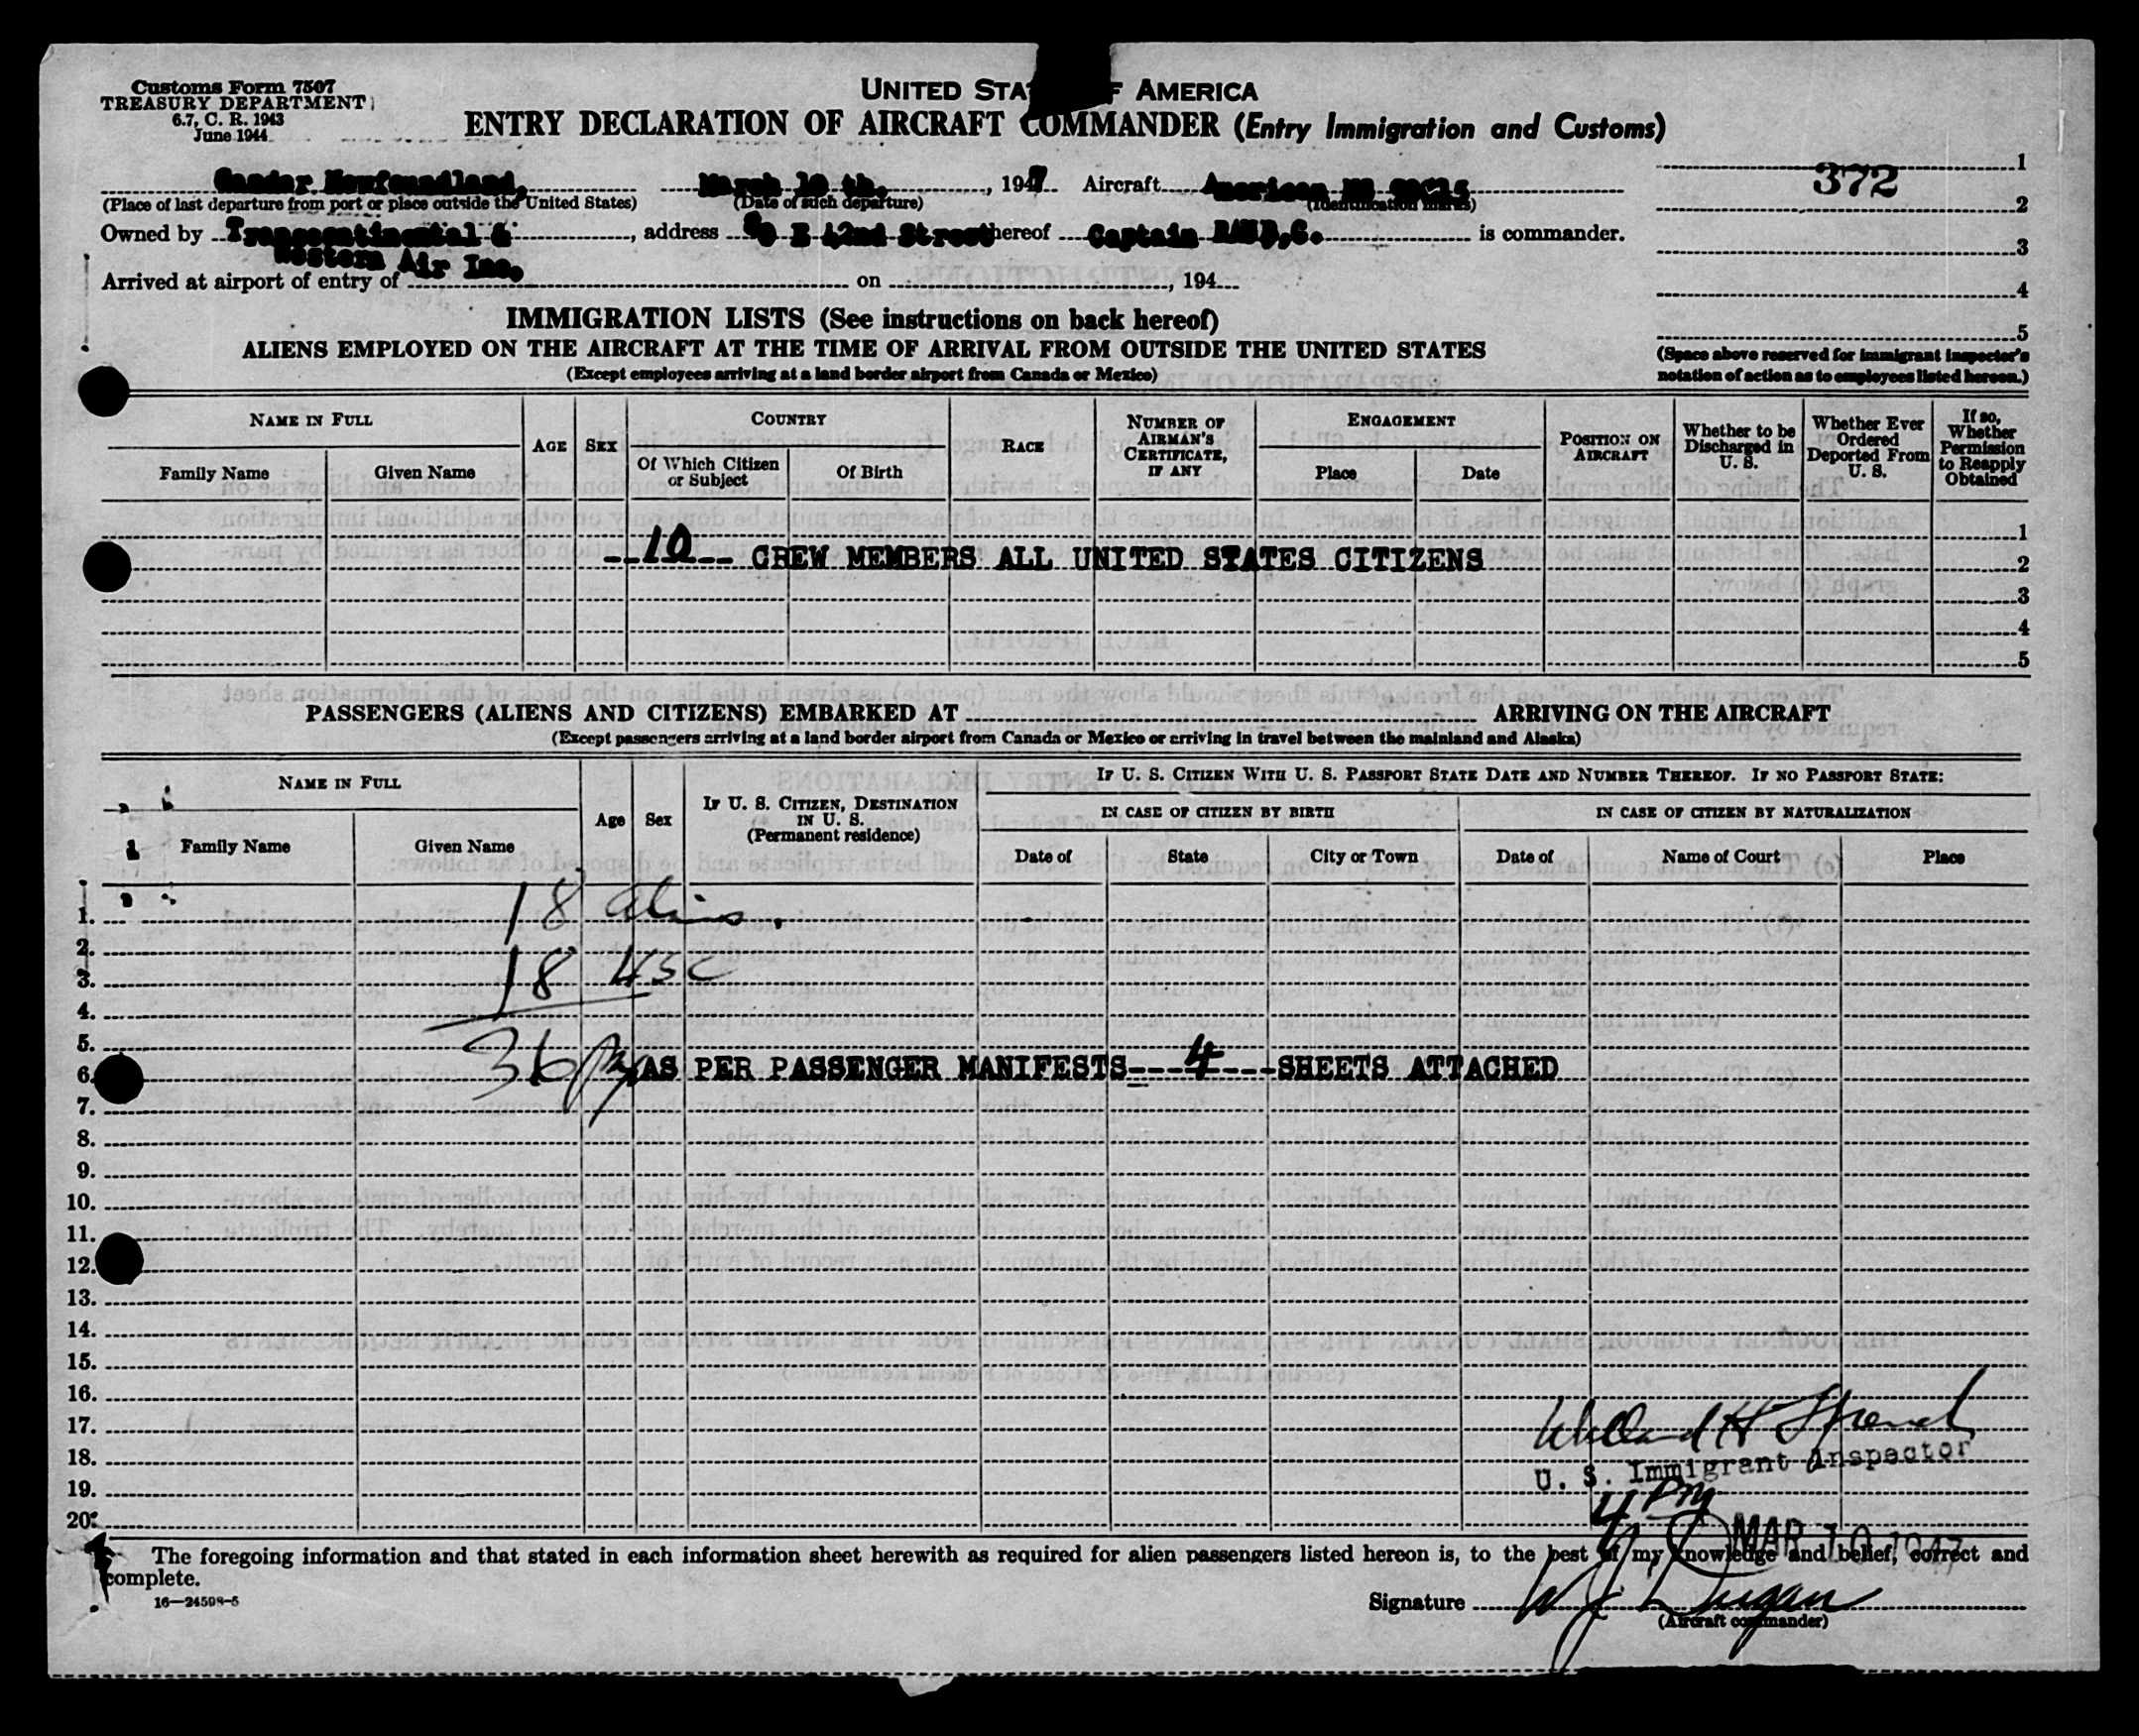 Customs Form 7507
TREASURY DEPARTMENT
6.7, C. R. 1943
June 1944
UNITED STA F AMERICA
ENTRY DECLARATION OF AIRCRAFT COMMANDER (Entry Immigration and Customs)
372
Gander Newfoundland, March 10 th. , 1947 Aircraft American
(Place of last departure from port or place outside the United States) (Date of such departure) (Identification marks)
Owned by Transcontinental & , address 80 E 42nd Street hereof Captain is commander.
Western Air Inc.
Arrived at airport of entry of on , 194
1
2
3
4
5
(Space above reserved for immigrant inspector's
notation of action as to employees listed hereon.)
IMMIGRATION LISTS (See instructions on back hereof)
ALIENS EMPLOYED ON THE AIRCRAFT AT THE TIME OF ARRIVAL FROM OUTSIDE THE UNITED STATES
(Except employees arriving at a land border airport from Canada or Mexico)
NAME IN FULL
Family Name Given Name
AGE
SEX
COUNTRY
Of Which Citizen or Subject
Of Birth
RACE
NUMBER OF AIRMAN'S CERTIFICATE, IF ANY
ENGAGEMENT
Place Date
POSITION ON AIRCRAFT
Whether to be Discharged in U. S.
Whether Ever Ordered Deported From U. S.
If so, Whether Permission to Reapply Obtained
1
--10-- CREW MEMBERS ALL UNITED STATES CITIZENS 2
3
4
5
PASSENGERS (ALIENS AND CITIZENS) EMBARKED AT ARRIVING ON THE AIRCRAFT
(Except passengers arriving at a land border airport from Canada or Mexico or arriving in travel between the mainland and Alaska)
NAME IN FULL
Family Name Given Name
Age
Sex
IF U. S. CITIZEN, DESTINATION IN U. S.
(Permanent residence)
IF U. S. CITIZEN WITH U. S. PASSPORT STATE DATE AND NUMBER THEREOF. IF NO PASSPORT STATE:
IN CASE OF CITIZEN BY BIRTH IN CASE OF CITIZEN BY NATURALIZATION
Date of State City or Town Date of Name of Court Place
1. 18 aliens.
2.
3. 18 USC
4.
5.
6. 36 AS PER PASSENGER MANIFESTS---4----SHEETS ATTACHED
7.
8.
9.
10.
11.
12.
13.
14.
15.
16.
17.
18.
19.
20.
U. S. Immigrant Inspector
4 PM
MAR 10 1947
The foregoing information and that stated in each information sheet herewith as required for alien passengers listed hereon is, to the best of my knowledge and belief, correct and
complete.
16—24598-5
Signature W J Dugan
(Aircraft commander)